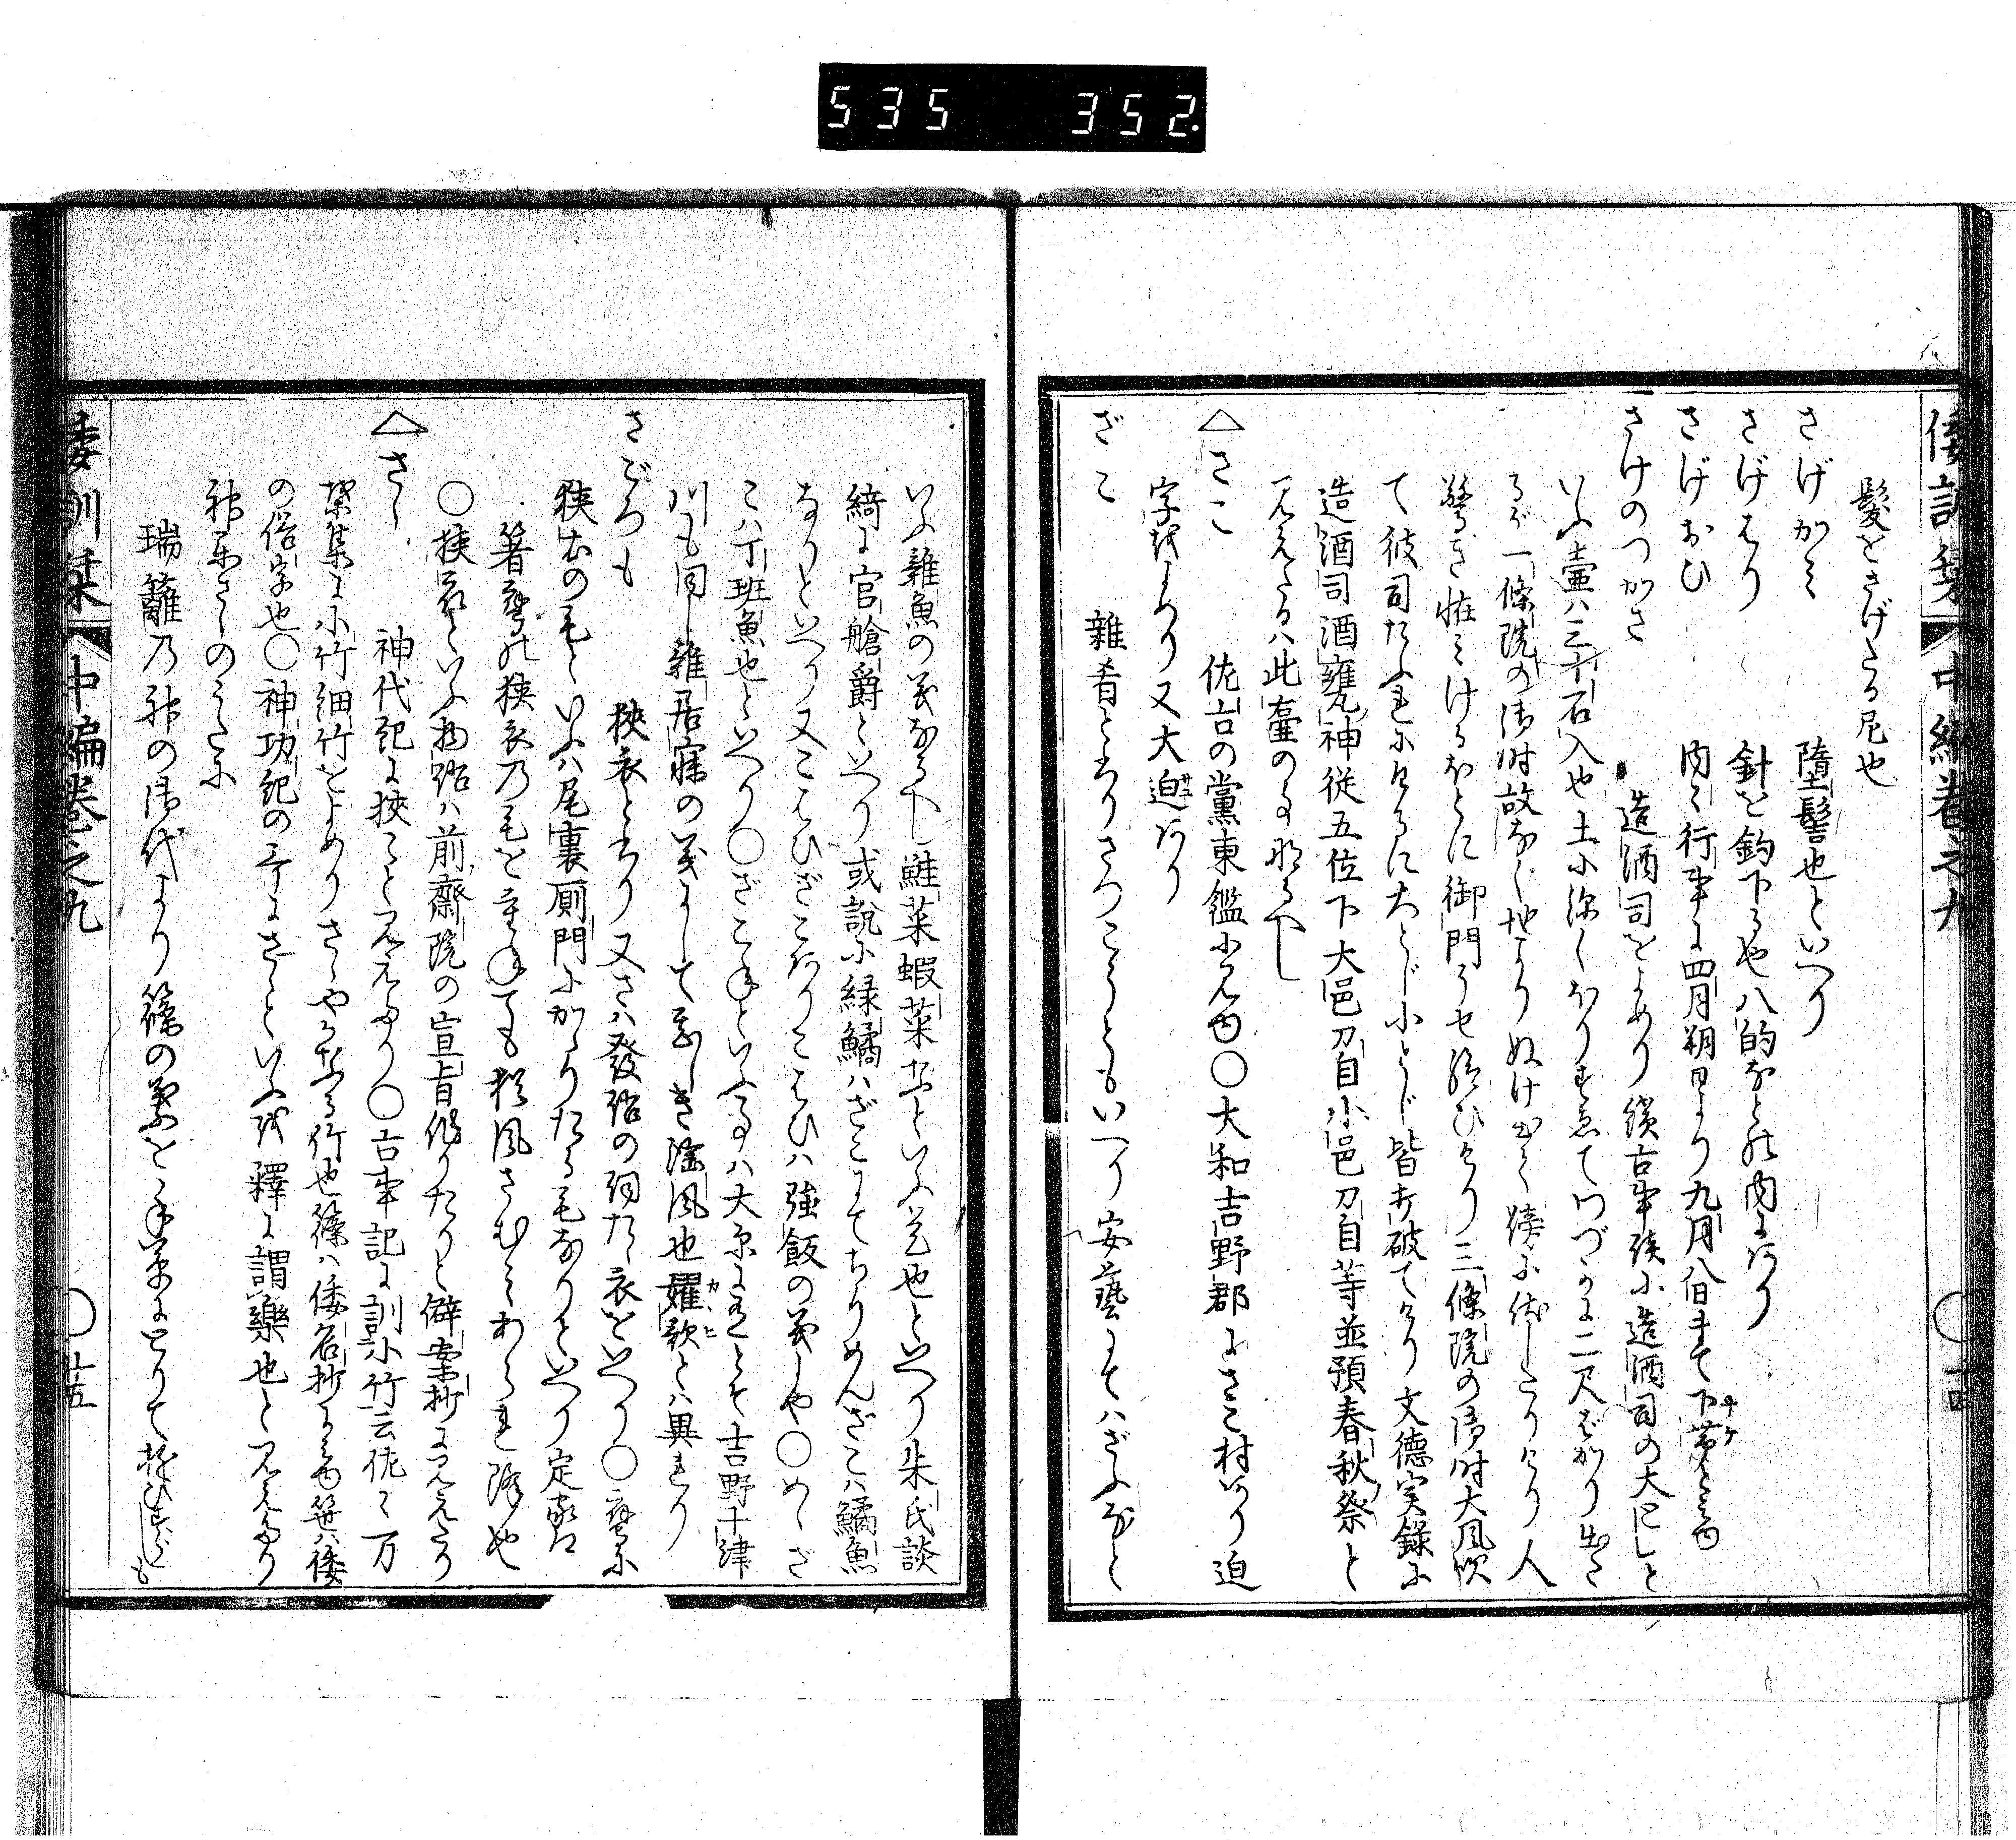 535 352.
倭訓栞 中編巻之九 〇十四
髪をさげたる尼也
さげかミ 墮髻也といへり
さげはり 針を釣下る也八的などの内にあり
さげおび 内々行事に四月朔日より九月八日まて下帯と見ゆ
さけのつかさ 造酒司をよめり続古事談に造酒司の大刀自と
いふ壷ハ三十石入也土に深くほりすゑてわづかに二尺ばかり出たる
るが一條院の御時故なく地よりぬけ出て 人
驚き怪ミけるほとに御門うせ給ひけり三條院の御時大風吹
て彼司たふれにけるに大とじ小とじ皆打破てけり文德実録に
造酒司酒甕神従五位下大邑刀自小邑刀自等並預春秋祭と
見えたるハ此壷の事なるへし
△さこ 佐古の黨東鑑に見ゆ〇大和吉野郡にさこ村あり迫
字をよめり又大迫あり
ざこ 雜肴とありさつこうともいへり安藝にてハざふなと
いふ雜魚の義なるへし鮭菜蝦菜なといふ是也といへり朱氏談
綺に官艙爵といへり或説に緑鱊ハざこにてちりめんざこハ鱊魚
なりといへり又こはひざこありこはひハ強飯の義にや〇め〱ざ
こハ丁斑魚也といへり〇ざこねといふ事ハ大原にありとそ吉野十津
川も同し雜居寐の義にして悪しき淫風也嬥歌とハ異れり
さごろも 狹衣とあり又さハ發語の詞たゝ衣をいへり〇鷹に
狹衣の毛といふハ尾裏厠門にかゝりたる毛なりといへり定家
箸鷹の狹衣の毛を重ねても 風さむミあられ降也
〇狹衣といふ物語ハ前齋院の宣旨作りたりと僻案抄に見えたり
△さゝ 神代紀に狹々と見えたり〇古事記に訓小竹云佐々万
葉集に小竹細竹をよめりさゝやかなる竹也篠ハ倭名抄に見ゆ笹ハ倭
の俗字也〇神功紀の哥にさゝといふを釋に謂樂也と見えたり
神樂さゝのうたに
瑞籬乃神の御代より篠の葉をた草にとりて遊ひすらしも
倭訓栞 中編巻之九 〇十五